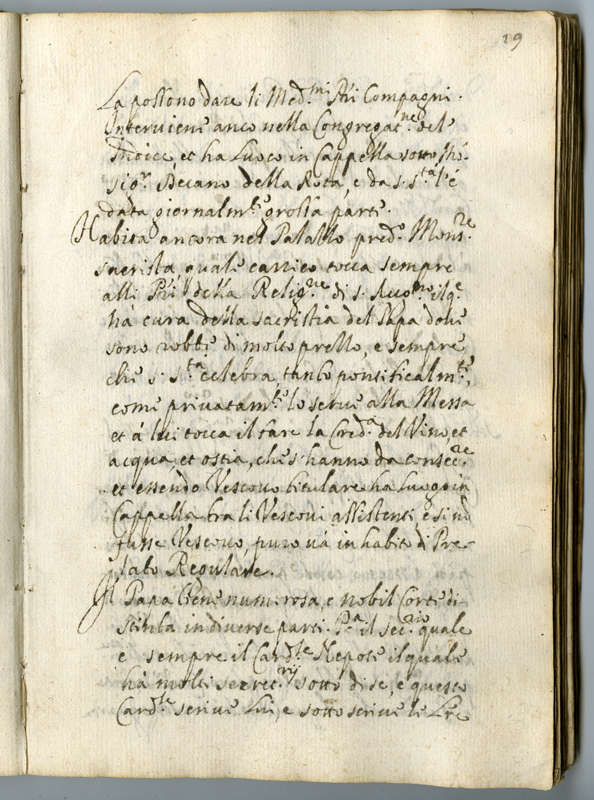 19
La possono dare li Med.mi Pri Compagni.
Interviene anco nella Congregat.ne del'
Indice, et ha luoco in Cappella sotto Mo.
sig.r Decano della Rota, e da s. s.tà l'è
data giornalm.te grossa parte.
Habita ancora nel Palazzo pred.o Mons.re
sacrista quale carrico tocca sempre
alli Pri della Relig.ne di s. Ago.no il q.e
hà cura della sacristia del Papa dove
sono robbe di molto prezzo, e sempre
che s. s.tà celebra, tanto pontificalm.te,
come privatam.te lo serve alla Messa
et à lui tocca il fare la Cred.a del Vino, et
acqua et ostia, che s'hanno da consec.re
et essendo Vescovo titulare ha luogo in
Cappella tra li Vescovi assistenti, e si nō
fusse Vescovo, puro và in habito di Pre-
lato Regulare.
Il Papa tiene numerosa, e nobil Corte di-
stinta in diverse parti. P.a il sec.rio quale
e sempre il Card.le Nepote il quale
hà molti secret.rij sotto di se, e questo
Card.le scrive lui, e sottoscrive le Lre